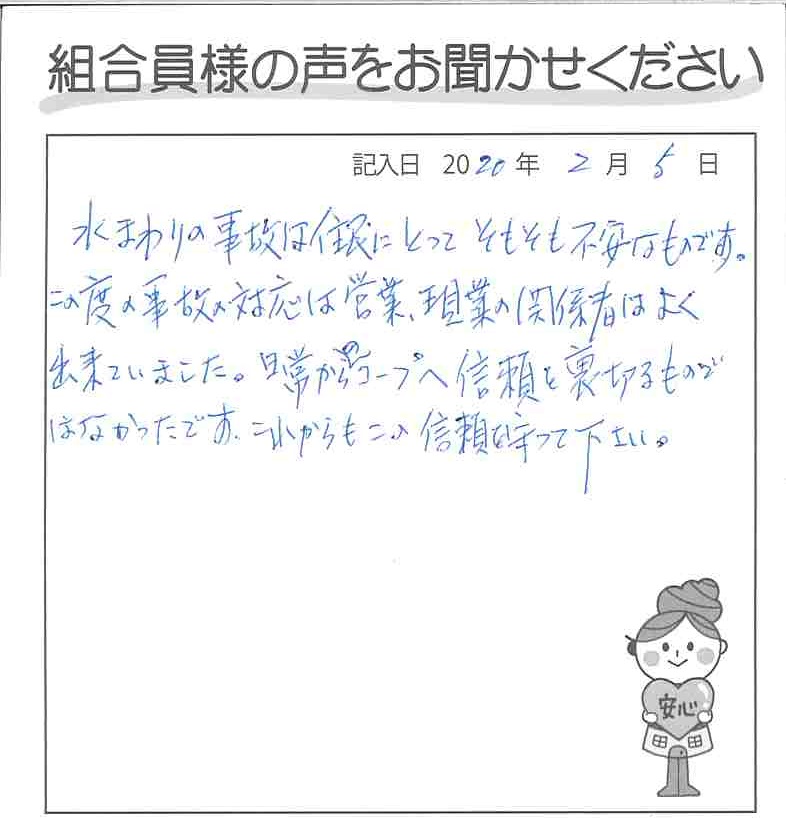 組合員様の声をお聞かせください
記入日 2020年 2月 5日
水まわりの事故は住民にとって そもそも不安なものです。
この度の事故の対応は営業、現業の関係者はよく
出来ていました。日常からのコープへ信頼を裏切るもので
はなかったです。これからもこの信頼を守って下さい。
安心